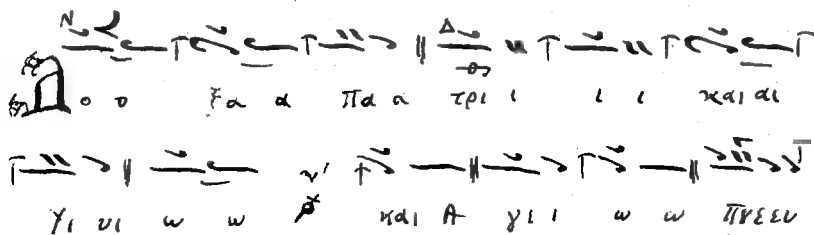 Δο ο ξα α πα α τρι ι ι ι και αι
Υι υι ω ω και Α γι ι ω ω Πνεευ